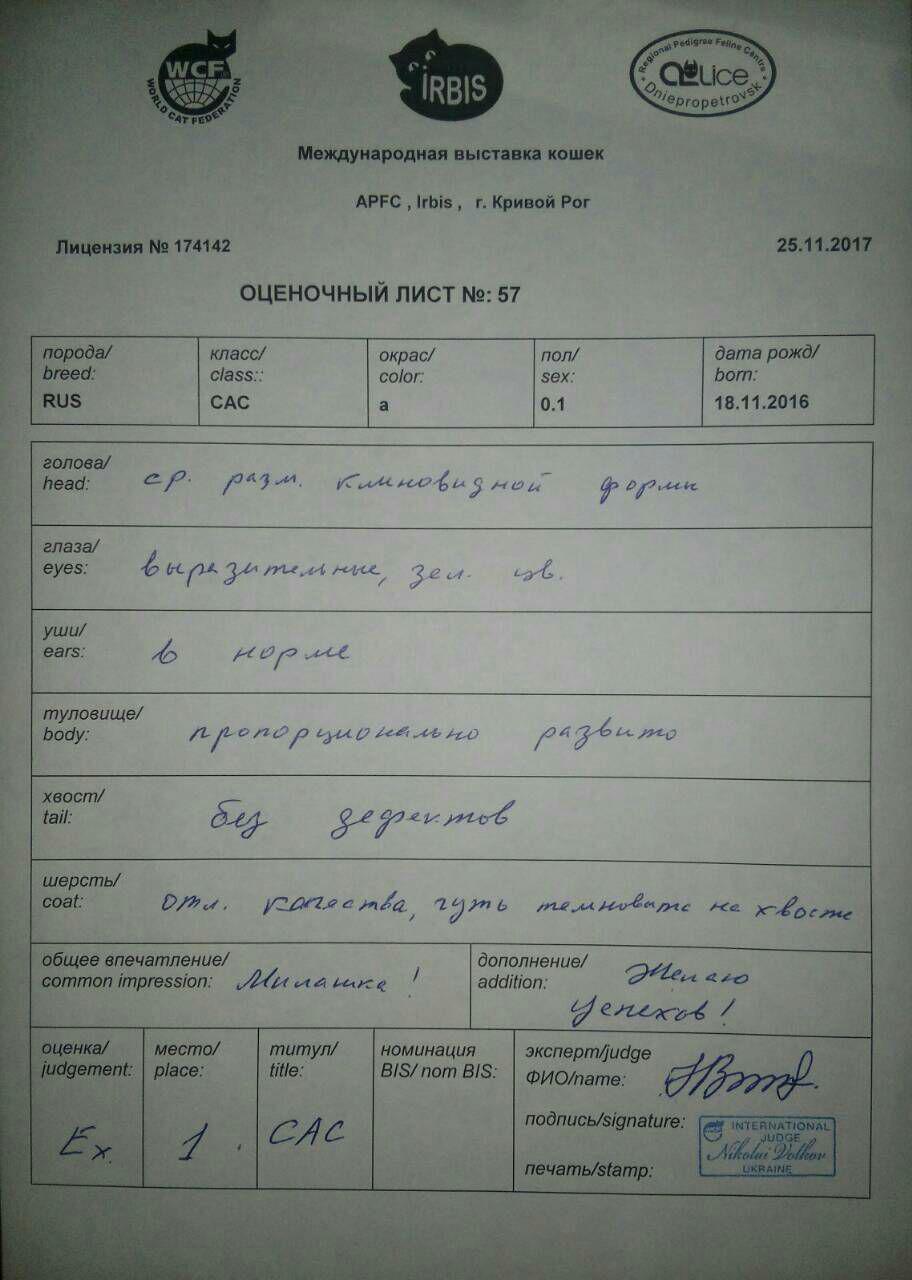 WCF
WORLD CAT FEDERATION
IRBIS
Regional Pedigree Feline Centre
aLice
Dniepropetrovsk
Международная выставка кошек
APFC , Irbis , г. Кривой Рог
Лицензия № 174142
25.11.2017
ОЦЕНОЧНЫЙ ЛИСТ №: 57
порода/
breed:
RUS
класс/
class::
CAC
окрас/
color:
a
пол/
sex:
0.1
дата рожд/
born:
18.11.2016
голова/
head:
ср. разм. клиновидной формы
глаза/
eyes:
выразительные, зел. цв.
уши/
ears:
в норме
туловище/
body:
пропорционально развито
хвост/
tail:
без дефектов
шерсть/
coat:
отл. качества, чуть темновата на хвосте
общее впечатление/
common impression:
Милашка!
дополнение/
addition:
Желаю
Успехов!
оценка/
judgement:
Ex.
место/
place:
1
титул/
title:
CAC
номинация
BIS/ nom BIS:
эксперт/judge
ФИО/name:
подпись/signature:
печать/stamp:
INTERNATIONAL
JUDGE
Nikolai Volkov
UKRAINE